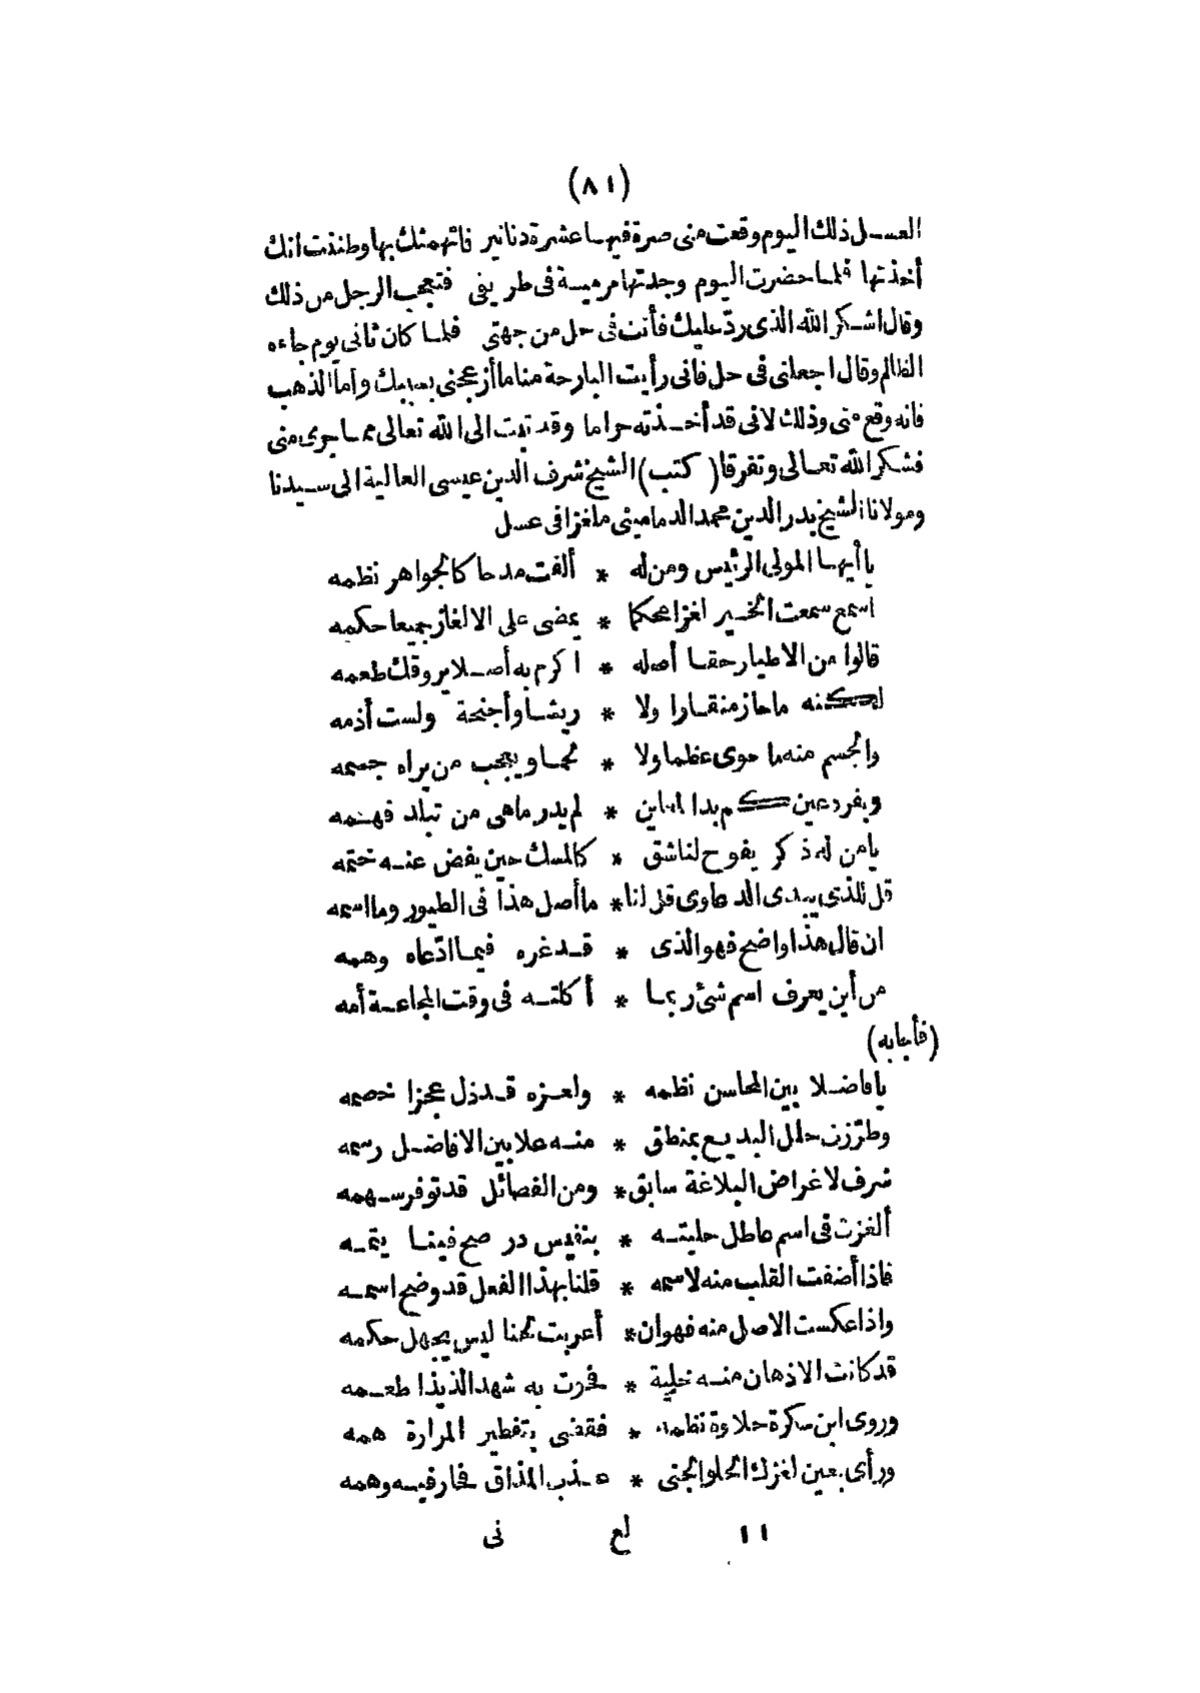 (٨١)
العسل ذلك اليوم وقعت منى صرة فيها عشرة دنانير فاتهمتك بها وظننت انك
أخذتها فلما حضرت اليوم وجدتها مرمية فى طريقى فتعجب الرجل من ذلك
وقال اشكر الله الذى ردّ عليك فأنت فى حل من جهتى فلما كان ثانى يوم جاءه
الظالم وقال اجعلنى فى حل فانى رأيت البارحة مناما أزعجنى بسببك وأما الذهب
فانه وقع منى وذلك لانى قد أخذته حراما وقد تبت الى الله تعالى مما جرى منى
فشكر الله تعالى وتفرقا (كتب) الشيخ شرف الدين عيسى العالية الى سيدنا
ومولانا الشيخ بدر الدين محمد الدمامينى ملغزا فى عسل
يا أيها المولى الرئيس ومن له * ألفت مدحا كالجواهر نظمه
اسمع سمعت الخير لغزا محكما * يمضى على الالغاز جميعا حكمه
قالوا من الاطيار حقا أصله * اكرم به أصلا يروقك طعمه
لكنه ما حاز منقارا ولا * ريشا وأجنحة ولست أذمه
والجسم منه ما حوى عظما ولا * لحما ويعجب من يراه جسمه
وبفرد عين كم بدا للناس * لم يدر ماهى من تبلد فهمه
يا من له ذكر يفوح لناشق * كالمسك حين يفض عنه ختمه
قل للذى يبدى الدعاوى قل لنا * ما أصل هذا فى الطيور وما اسمه
ان قال هذا واضح فهو الذى * قد غره فيما ادّعاه وهمه
من أين يعرف اسم شئ ربما * أكلته فى وقت المجاعة أمه
(فأجابه)
يا فاضلا بين المحاسن نظمه * ولعزه قد ذل عجزا خصمه
وطرّزت حلل البديع بمنطق * منه علا بين الافاضل رسمه
شرف لاغراض البلاغة سابق * ومن الفضائل قد توفر سهمه
ألغزت فى اسم عاطل حليته * بنفيس در صح فينا يتمه
فاذا أضفت القلب منه لاسمه * قلنا بهذا الفعل قد وضح اسمه
واذا عكست الاصل منه فهو ان * أعربت لحنا ليس يجهل حكمه
قد كانت الاذهان منه خلية * فخرت به شهدا لذيذا طعمه
وروى ابن سكرة حلاوة نظمه * فقضى بتفطير المرارة همه
ورأى بعين لغزك الحلو الجنى * عذب المذاق فحار فيه وهمه
١١ لع نى